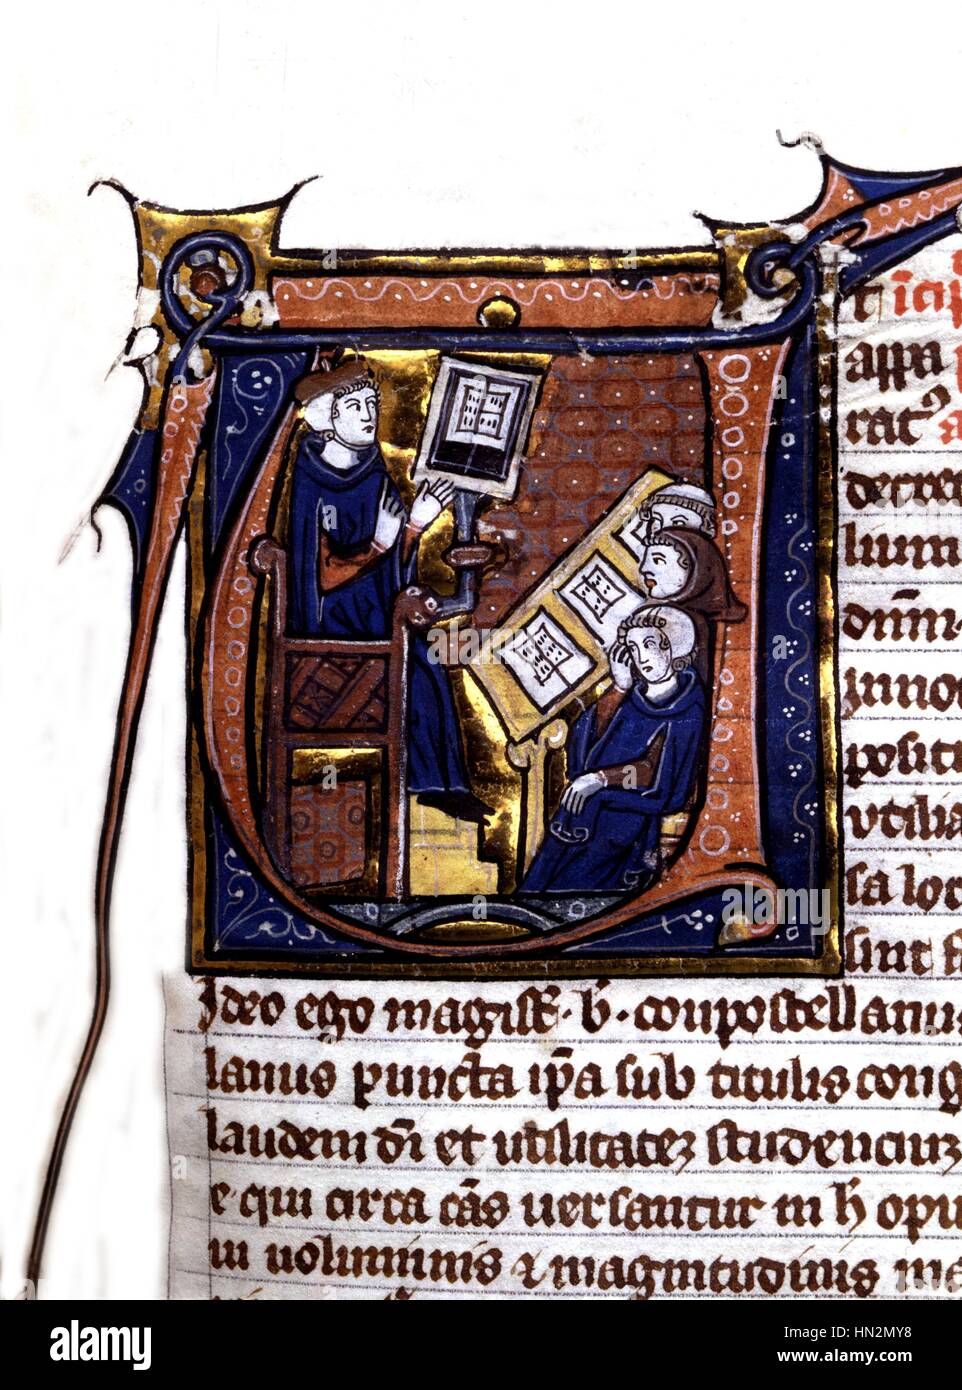 ti icip
appa
rac9 a
decre
lium
dnm
inno
positi
utilia
sa lor
sint
Ideo ego magist̃ · b̃ · conpostellanus
lanus puncta ip̃a sub titulis cong
laudem dī et utilitatez studenciuz
e qui circa cās versantur in h opu
iu voluminis ⁊ magnitudinis ma
alamy
a
alamy
Image ID: HN2MY8
www.alamy.com